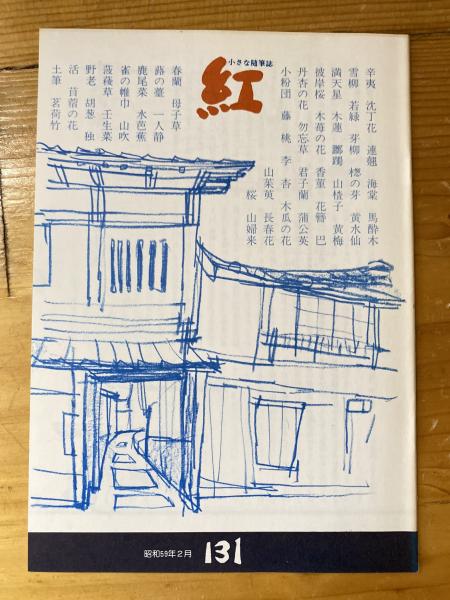 小さな随筆誌
紅
辛夷 沈丁花 連翹 海棠 馬酔木
雪柳 若緑 芽柳 楤の芽 黄水仙
満天星 木蓮 躑躅 山樝子 黄梅
彼岸桜 木苺の花 香菫 花簪 巴
丹杏の花 勿忘草 君子蘭 蒲公英
小粉団 藤 桃 李 杏 木瓜の花
山茱萸 長春花
桜 山婦来
春蘭 母子草
蕗の薹 一人静
鹿尾菜 水芭蕉
雀の帷巾 山吹
菠薐草 壬生菜
野老 胡葱 独
活 苜蓿の花
土筆 茗荷竹
昭和59年2月
131